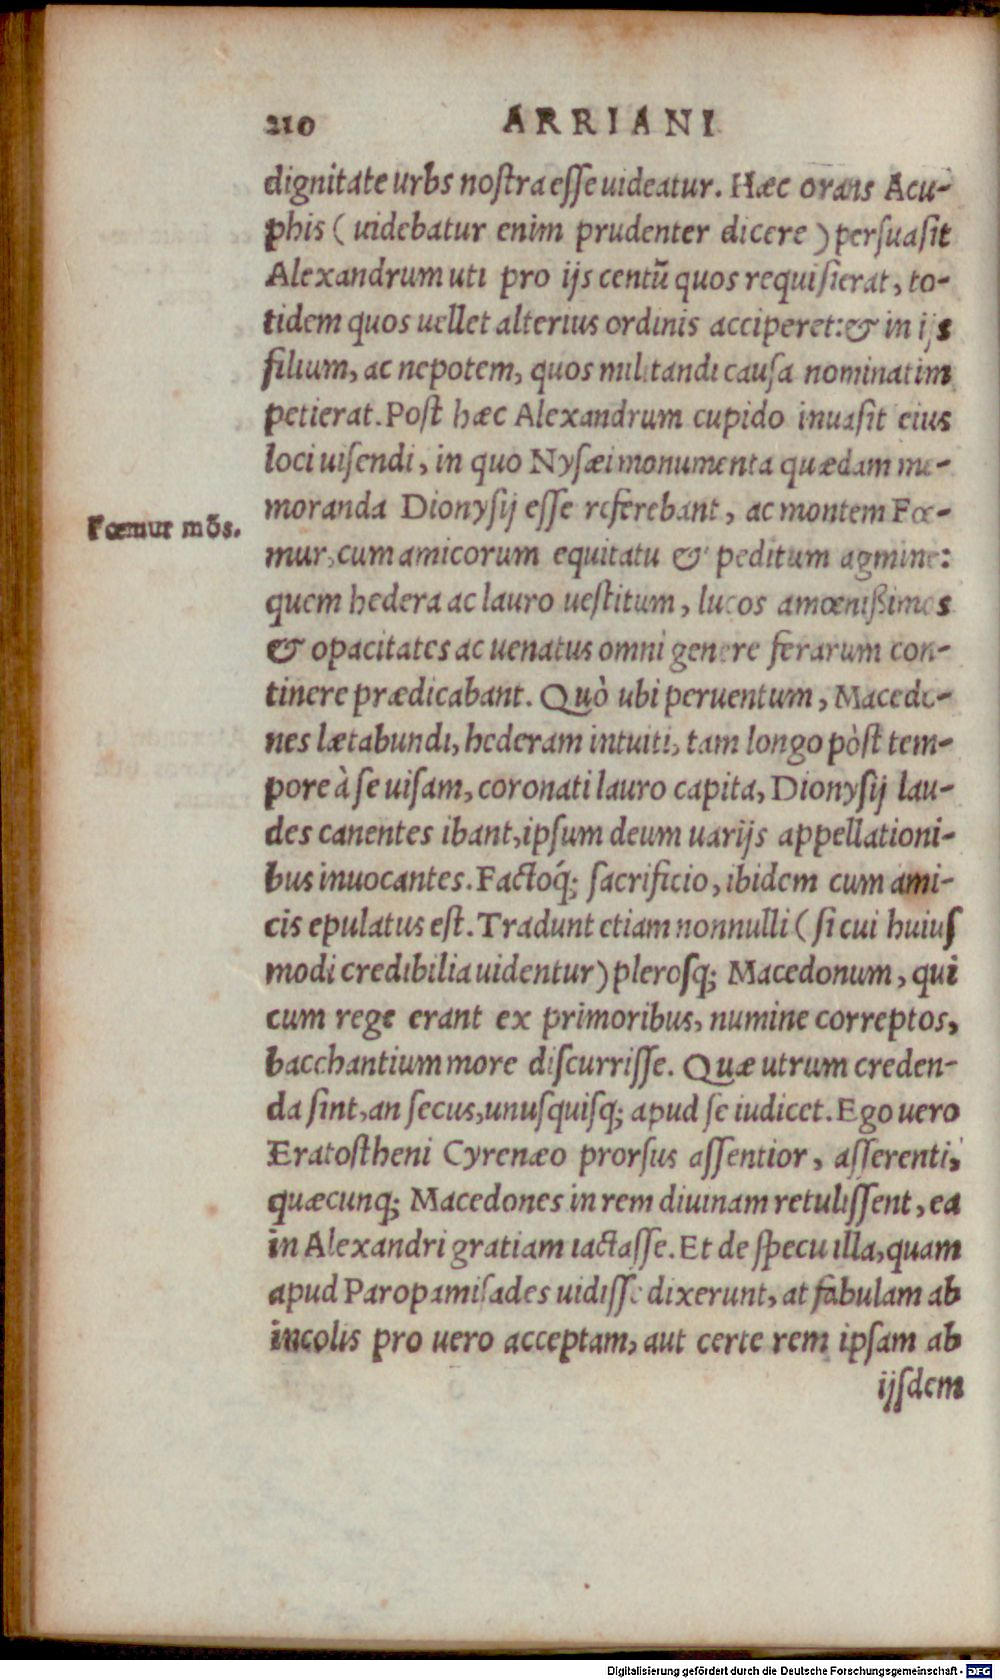 210 ARRIANI
dignitate urbs noſtra eſſe uideatur. Hæc orans Acu-
phis ( uidebatur enim prudenter dicere ) perſuaſit
Alexandrum uti pro ijs centũ quos requiſierat, to-
tidem quos uellet alterius ordinis acciperet:& in ijs
filium, ac nepotem, quos militandi cauſa nominatim
petierat. Poſt hæc Alexandrum cupido inuaſit eius
loci uiſendi, in quo Nyſæi monumenta quædam me-
moranda Dionyſij eſſe referebant, ac montem Fœ-
Fœmur mõs.
mur, cum amicorum equitatu & peditum agmine:
quem hedera ac lauro ueſtitum, lucos amœnißimos
& opacitates ac uenatus omni genere ferarum con-
tinere prædicabant. Quò ubi peruentum, Macedo-
nes lætabundi, hederam intuiti, tam longo pòſt tem-
pore à ſe uiſam, coronati lauro capita, Dionyſij lau-
des canentes ibant, ipſum deum uarijs appellationi-
bus inuocantes. Factoq́; ſacrificio, ibidem cum ami-
cis epulatus eſt. Tradunt etiam nonnulli ( ſi cui huiuſ
modi credibilia uidentur) pleroſq; Macedonum, qui
cum rege erant ex primoribus, numine correptos,
bacchantium more diſcurriſſe. Quæ utrum creden-
da ſint, an ſecus, unuſquiſq; apud ſe iudicet. Ego uero
Eratoſtheni Cyrenæo prorſus aſſentior, aſſerenti,
quæcunq; Macedones in rem diuinam retuliſſent, ea
in Alexandri gratiam iactaſſe. Et de ſpecu illa, quam
apud Paropamiſades uidiſſe dixerunt, at fabulam ab
incolis pro uero acceptam, aut certe rem ipſam ab
ijſdem
Digitalisierung gefördert durch die Deutsche Forschungsgemeinschaft - DFG